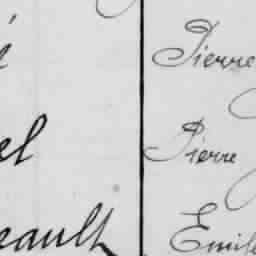 Pierre
el Pierre
eault Emile